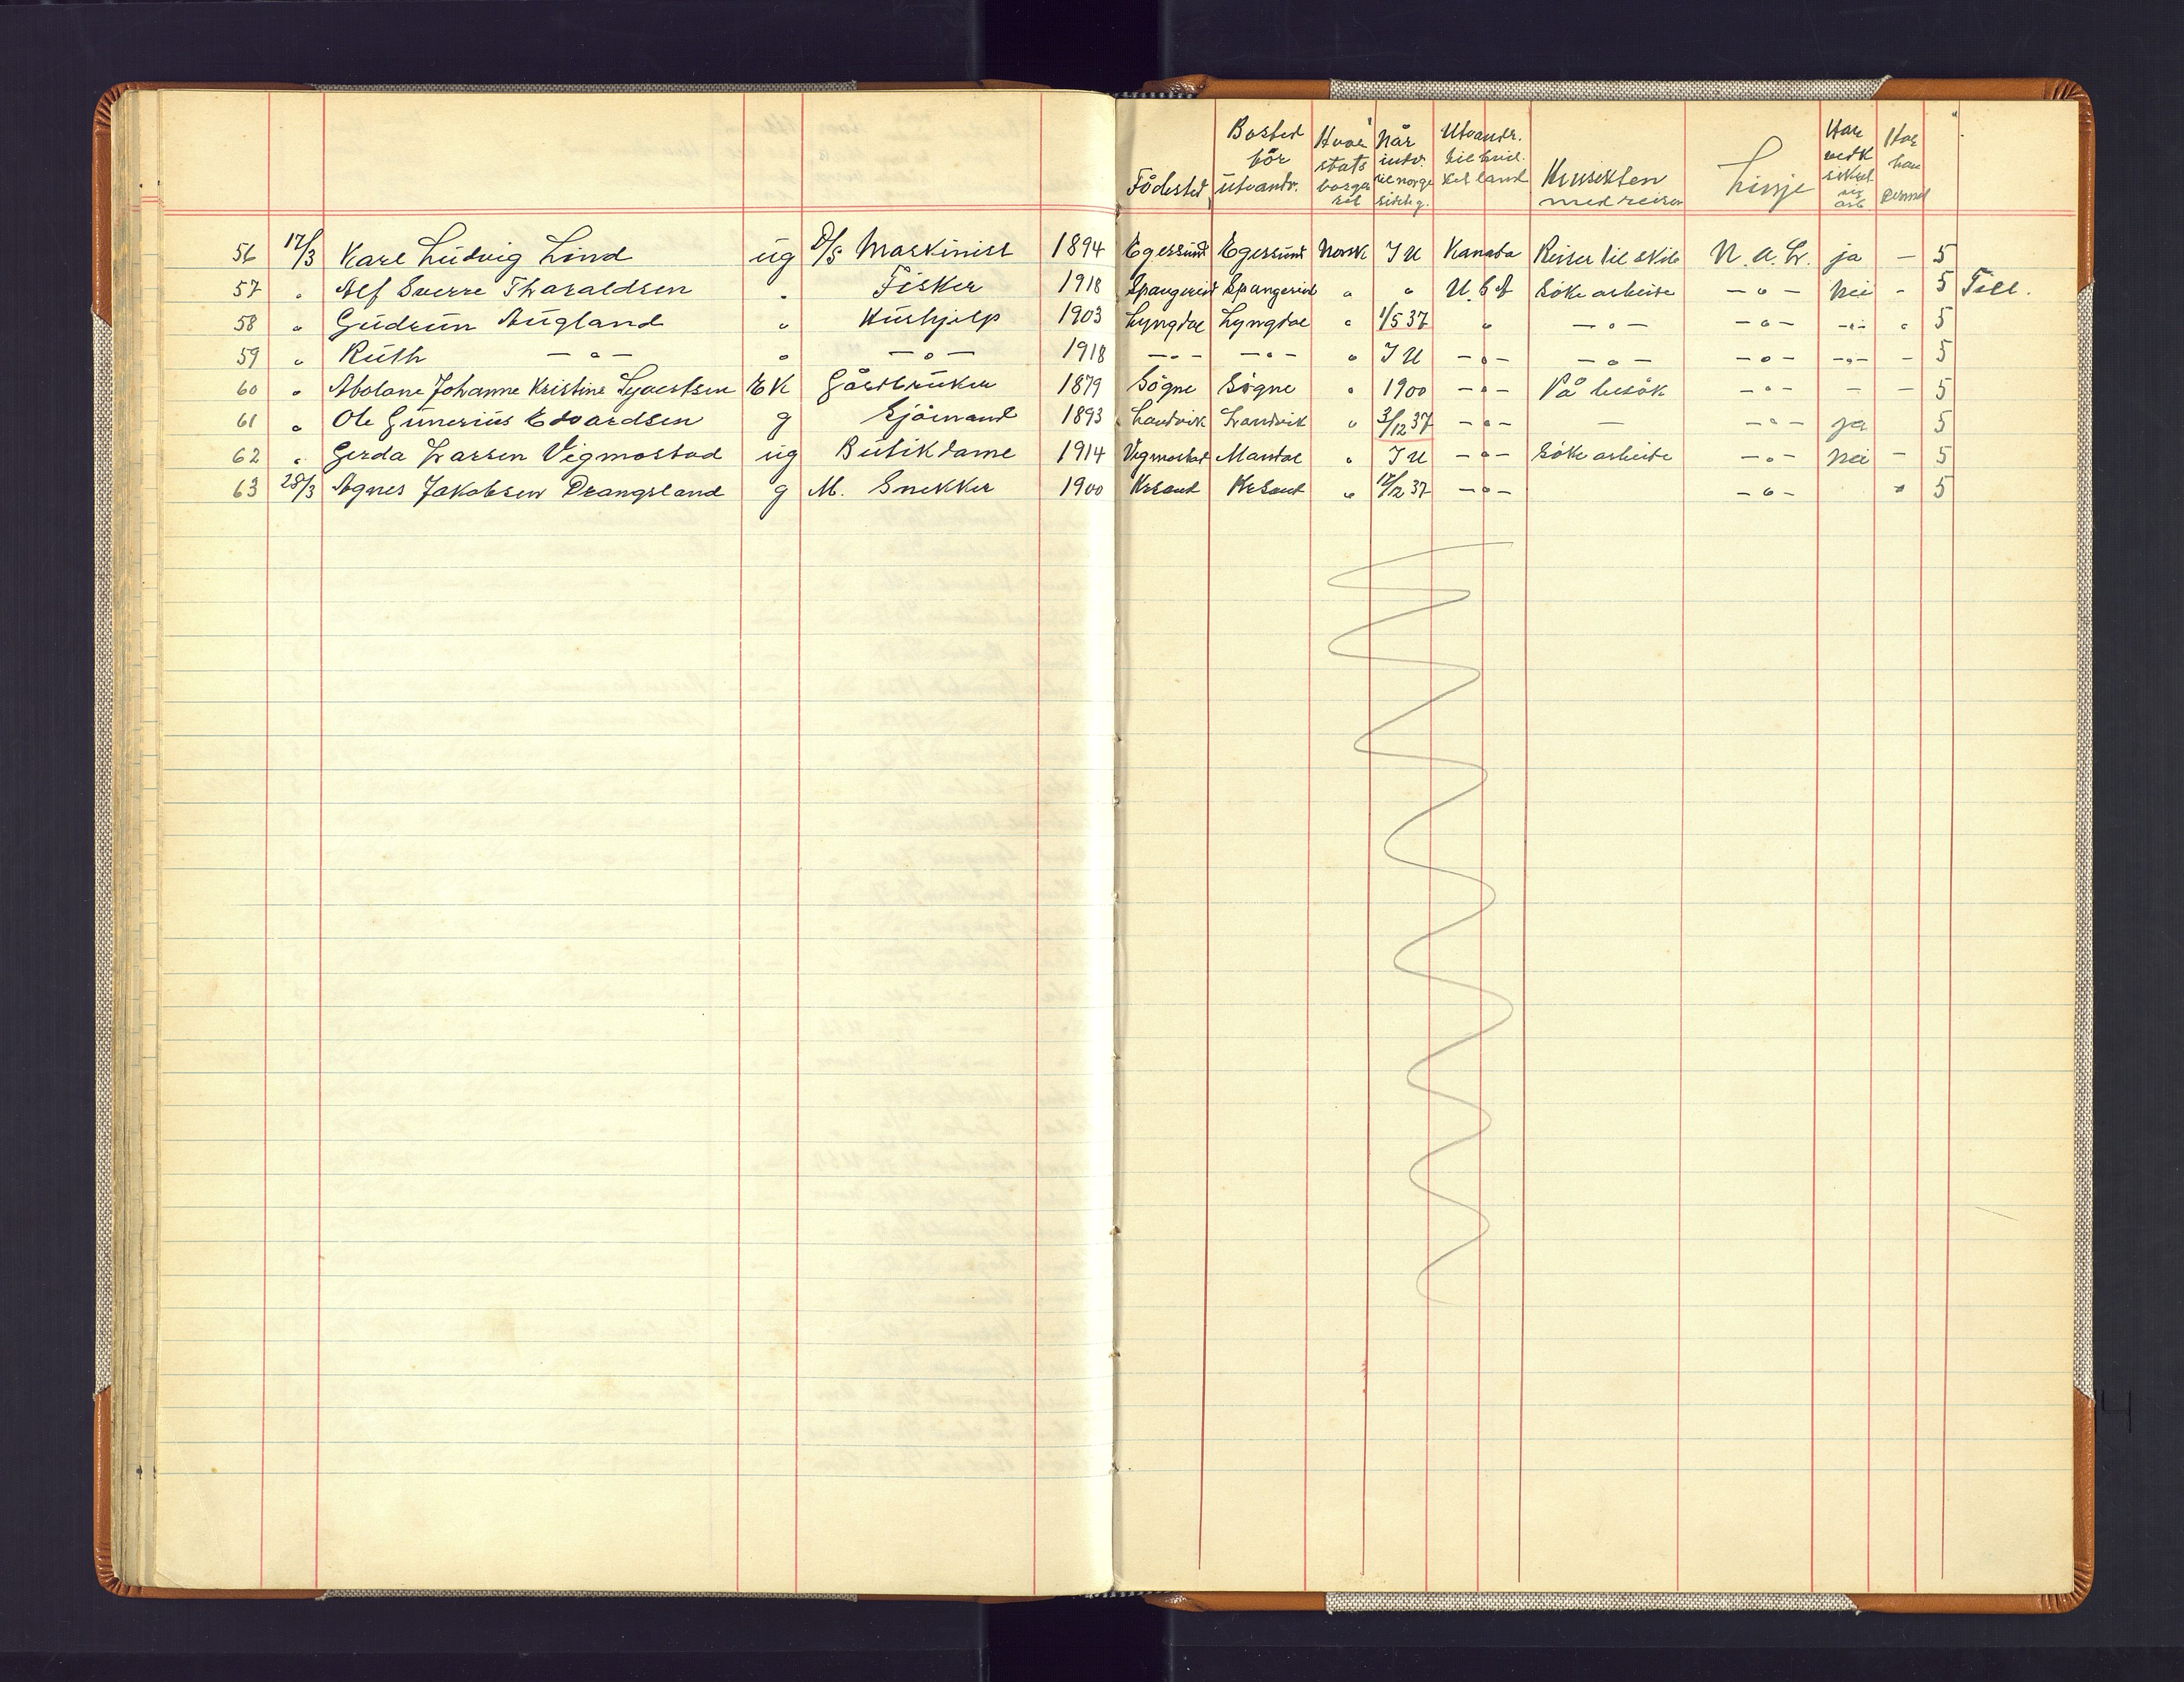 Födested Bosted för utvandr. Hvor stats borger ret Når indv. til norge sidstg. Utvandr. til hvil- ket land Hensikten med reisen Linje Har vedk sikret sig arb. Har han
56 17/3 Karl Ludvig Lind ug D/S Maskinist 1894 Egersund Egersund Norsk I U Kanada Reiser til skib N. A. L. ja — 5
57 " Alf Sverre Tharaldsen " Fisker 1918 Spangereid Spangereid " " U.S.A Söke arbeide — " — Nei - 5 Fill.
58 " Gudrun Augland " Hushjelp 1903 Lyngdal Lyngdal " 1/5 37 " — " — — " — — " — " 5
59 " Ruth — " — " — " — 1918 — " — — " — " I U — " — — " — — " — — " — — 5
60 " Abolone Johanne Kristine Syvertsen EK Gårdbruker 1879 Sögne Sögne " 1900 — " — På besök — " — — — 5
61 " Ole Gunerius Edvardsen g Sjömand 1893 Landvik Landvik " 3/12 37 — " — — — " — ja 5
62 " Gerda Larsen Vigmostad ug Butikdame 1914 Vigmostad Mandal " I U — " — Söke arbeide — " — Nei — 5
63 25/3 Agnes Jakobsen Drangsland g M. Snekker 1900 Krsand Krsand " 12/2 37 — " — — " — " 5